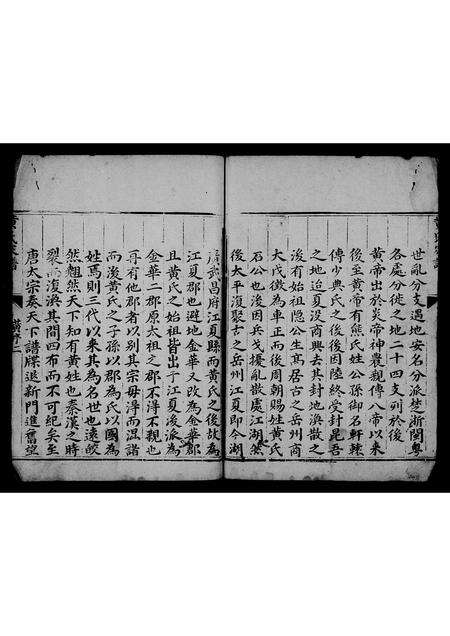 世亂分支遇地安名分派芝浙閩粵
各處分徙之地二十四支列於後
黃帝出於炎帝神農親傳八帝以來
後至黃帝有熊氏姓公孫御名軒轅
傳少典氏之後後因陸終受封昆吾
之地迨夏沒商興去其封地渙散之
後有始祖隱公生髙居古之岳州商
大戊徵為車正而後周朝賜姓黃氏
石公也後因兵戈擾亂散處江湖然
後太平復聚古之岳州江夏即今湖
廣武昌府江夏縣而黃氏之後故為
江夏郡也避地金華又改為金華郡
且黃氏之始祖皆出于江夏後派為
金華二郡原太祖之郡不淂不親也
再有他郡者以別其宗毋淂而混諸
而後黃氏之子孫以郡為氏以國為
姓焉則三代以來其為名世也遠紋
然翹然天下知有黃姓也秦漢之時
裂而復渙其間四布而不可紀矣至
唐太宗奏天下譜牒退新門進舊望